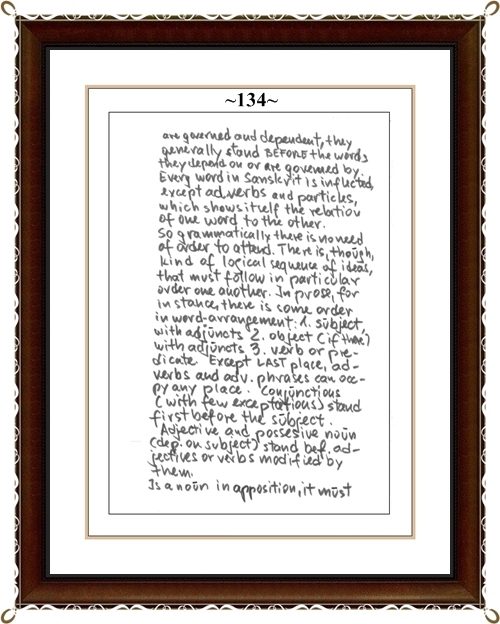 ~134~
are governed and dependent, they
generally stand BEFORE the words
they depend on or are governed by.
Every word in Sanskrit is inflected,
except adverbs and particles,
which shows itself the relation
of one word to the other.
So grammatically there is no need
of order to attend. There is, though,
kind of logical sequence of ideas,
that must follow in particular
order one another. In prose, for
instance, there is some order
in word-arrangement: 1. sūbject,
with adjūncts 2. object (if there)
with adjūncts 3. verb or pre-
dicate. Except LAST place, ad-
verbs and adv. phrases can occ-
py any place. Conjūnctions
(with few exceptations) stand
first before the sūbject.
Adjective and possesive noūn
(dep. on subject) stand bef. ad-
jectives or verbs modified by
them.
Is a noūn in apposition, it mūst